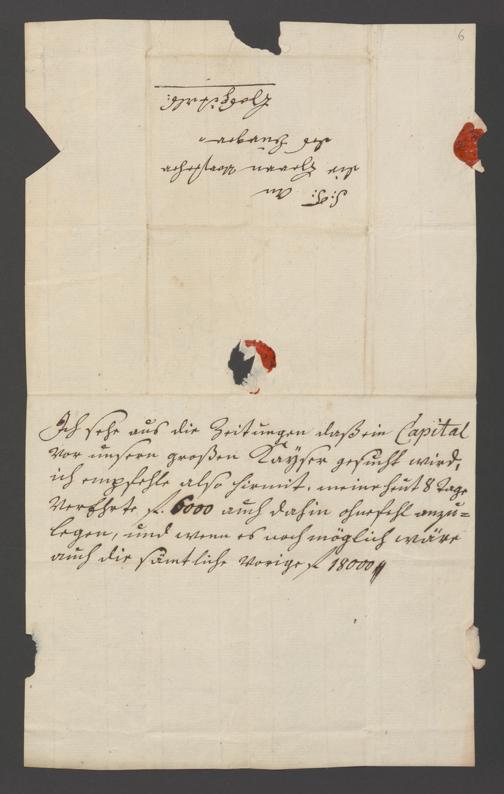 6
S: T: An
die Herren Vorsteher
des Zuchau
Ich sehe aus die Zeitungen daß ein Capital
vor unsern großen Kayser gesucht wird,
ich empfehle also hirmit, meine heut 8 tage
verEhrte fl. 6000 auch dahin ohnefehl anzu=
legen, und wenn es noch möglich wäre
auch die sämtliche vorige fl 18000